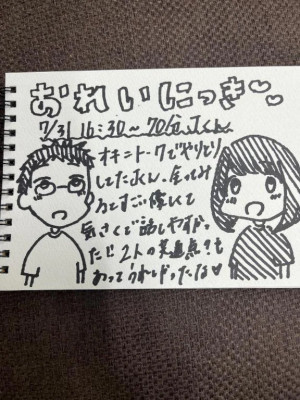 おれいにっき♡♡
7/31 16:30〜70分 Jくん
オキニトークでやりとり
してたJくん、会ってみ
たらすごい優しくて
気さくで話しやすかっ
たし2人の共通点も
あってうれしかったな♡